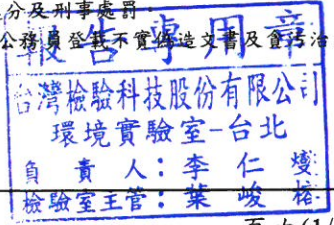 分及刑事處罰。
公務員登載不實偽造文書及貪污治
報告專用章
台灣檢驗科技股份有限公司
環境實驗室-台北
負責人：李仁燮
檢驗室主管：葉峻榕
頁次(1/